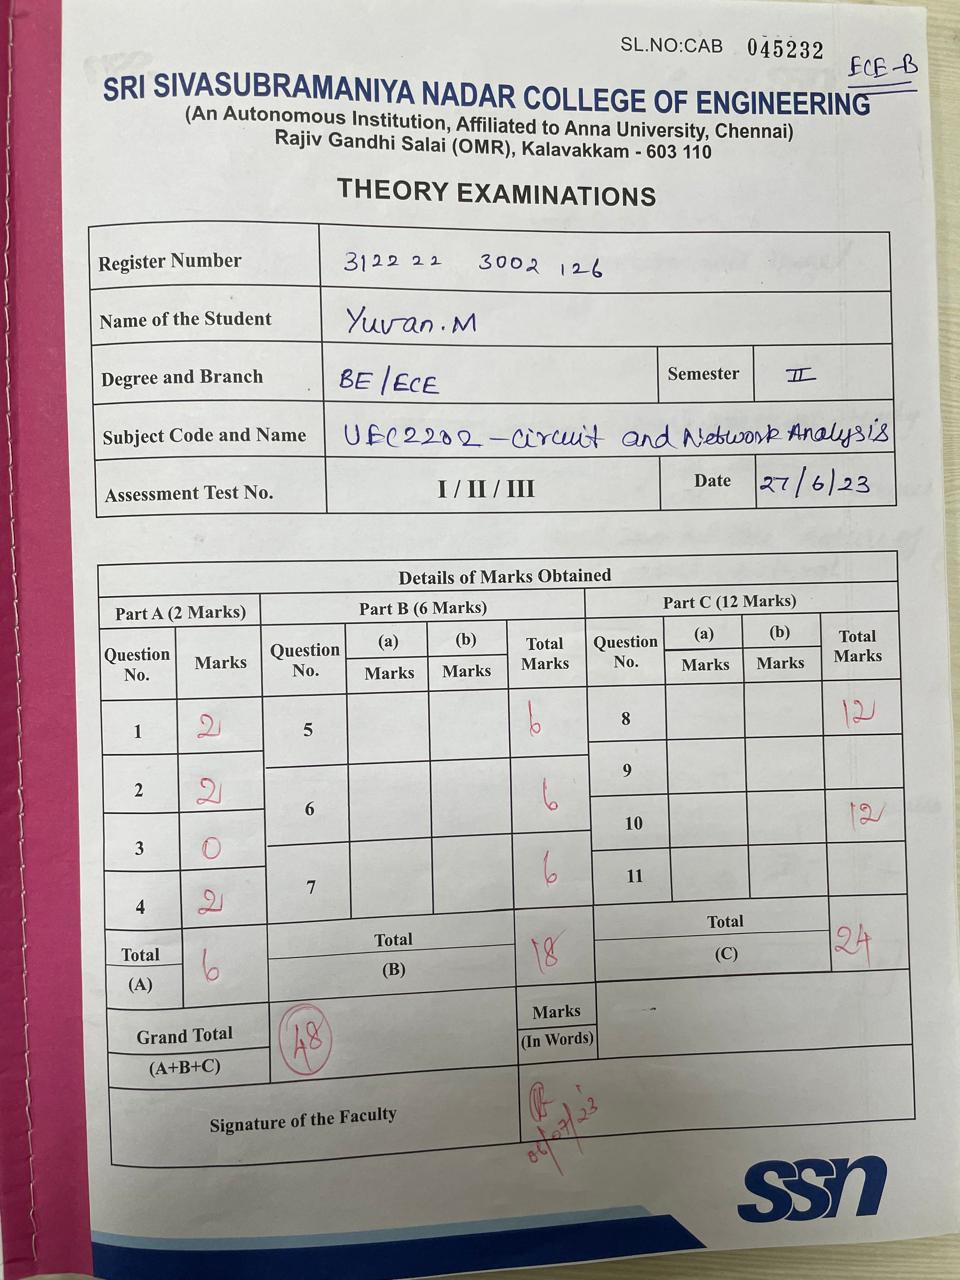 SL.NO:CAB 045232
ECE-B
SRI SIVASUBRAMANIYA NADAR COLLEGE OF ENGINEERING
(An Autonomous Institution, Affiliated to Anna University, Chennai)
Rajiv Gandhi Salai (OMR), Kalavakkam - 603 110
THEORY EXAMINATIONS
Register Number 3122 22 3002 126
Name of the Student Yuvan.M
Degree and Branch BE/ECE Semester II
Subject Code and Name UEC2202 - Circuit and Network Analysis
Assessment Test No. I / II / III Date 27/6/23
Details of Marks Obtained
Part A (2 Marks) Part B (6 Marks) Part C (12 Marks)
Question No. Marks Question No. (a) Marks (b) Marks Total Marks Question No. (a) Marks (b) Marks Total Marks
1 2 5 6 8 12
2 2 6 6 9
3 0 7 6 10 12
4 2 11
Total (A) 6 Total (B) 18 Total (C) 24
Grand Total (A+B+C) 48 Marks (In Words)
Signature of the Faculty
06/07/23
ssn